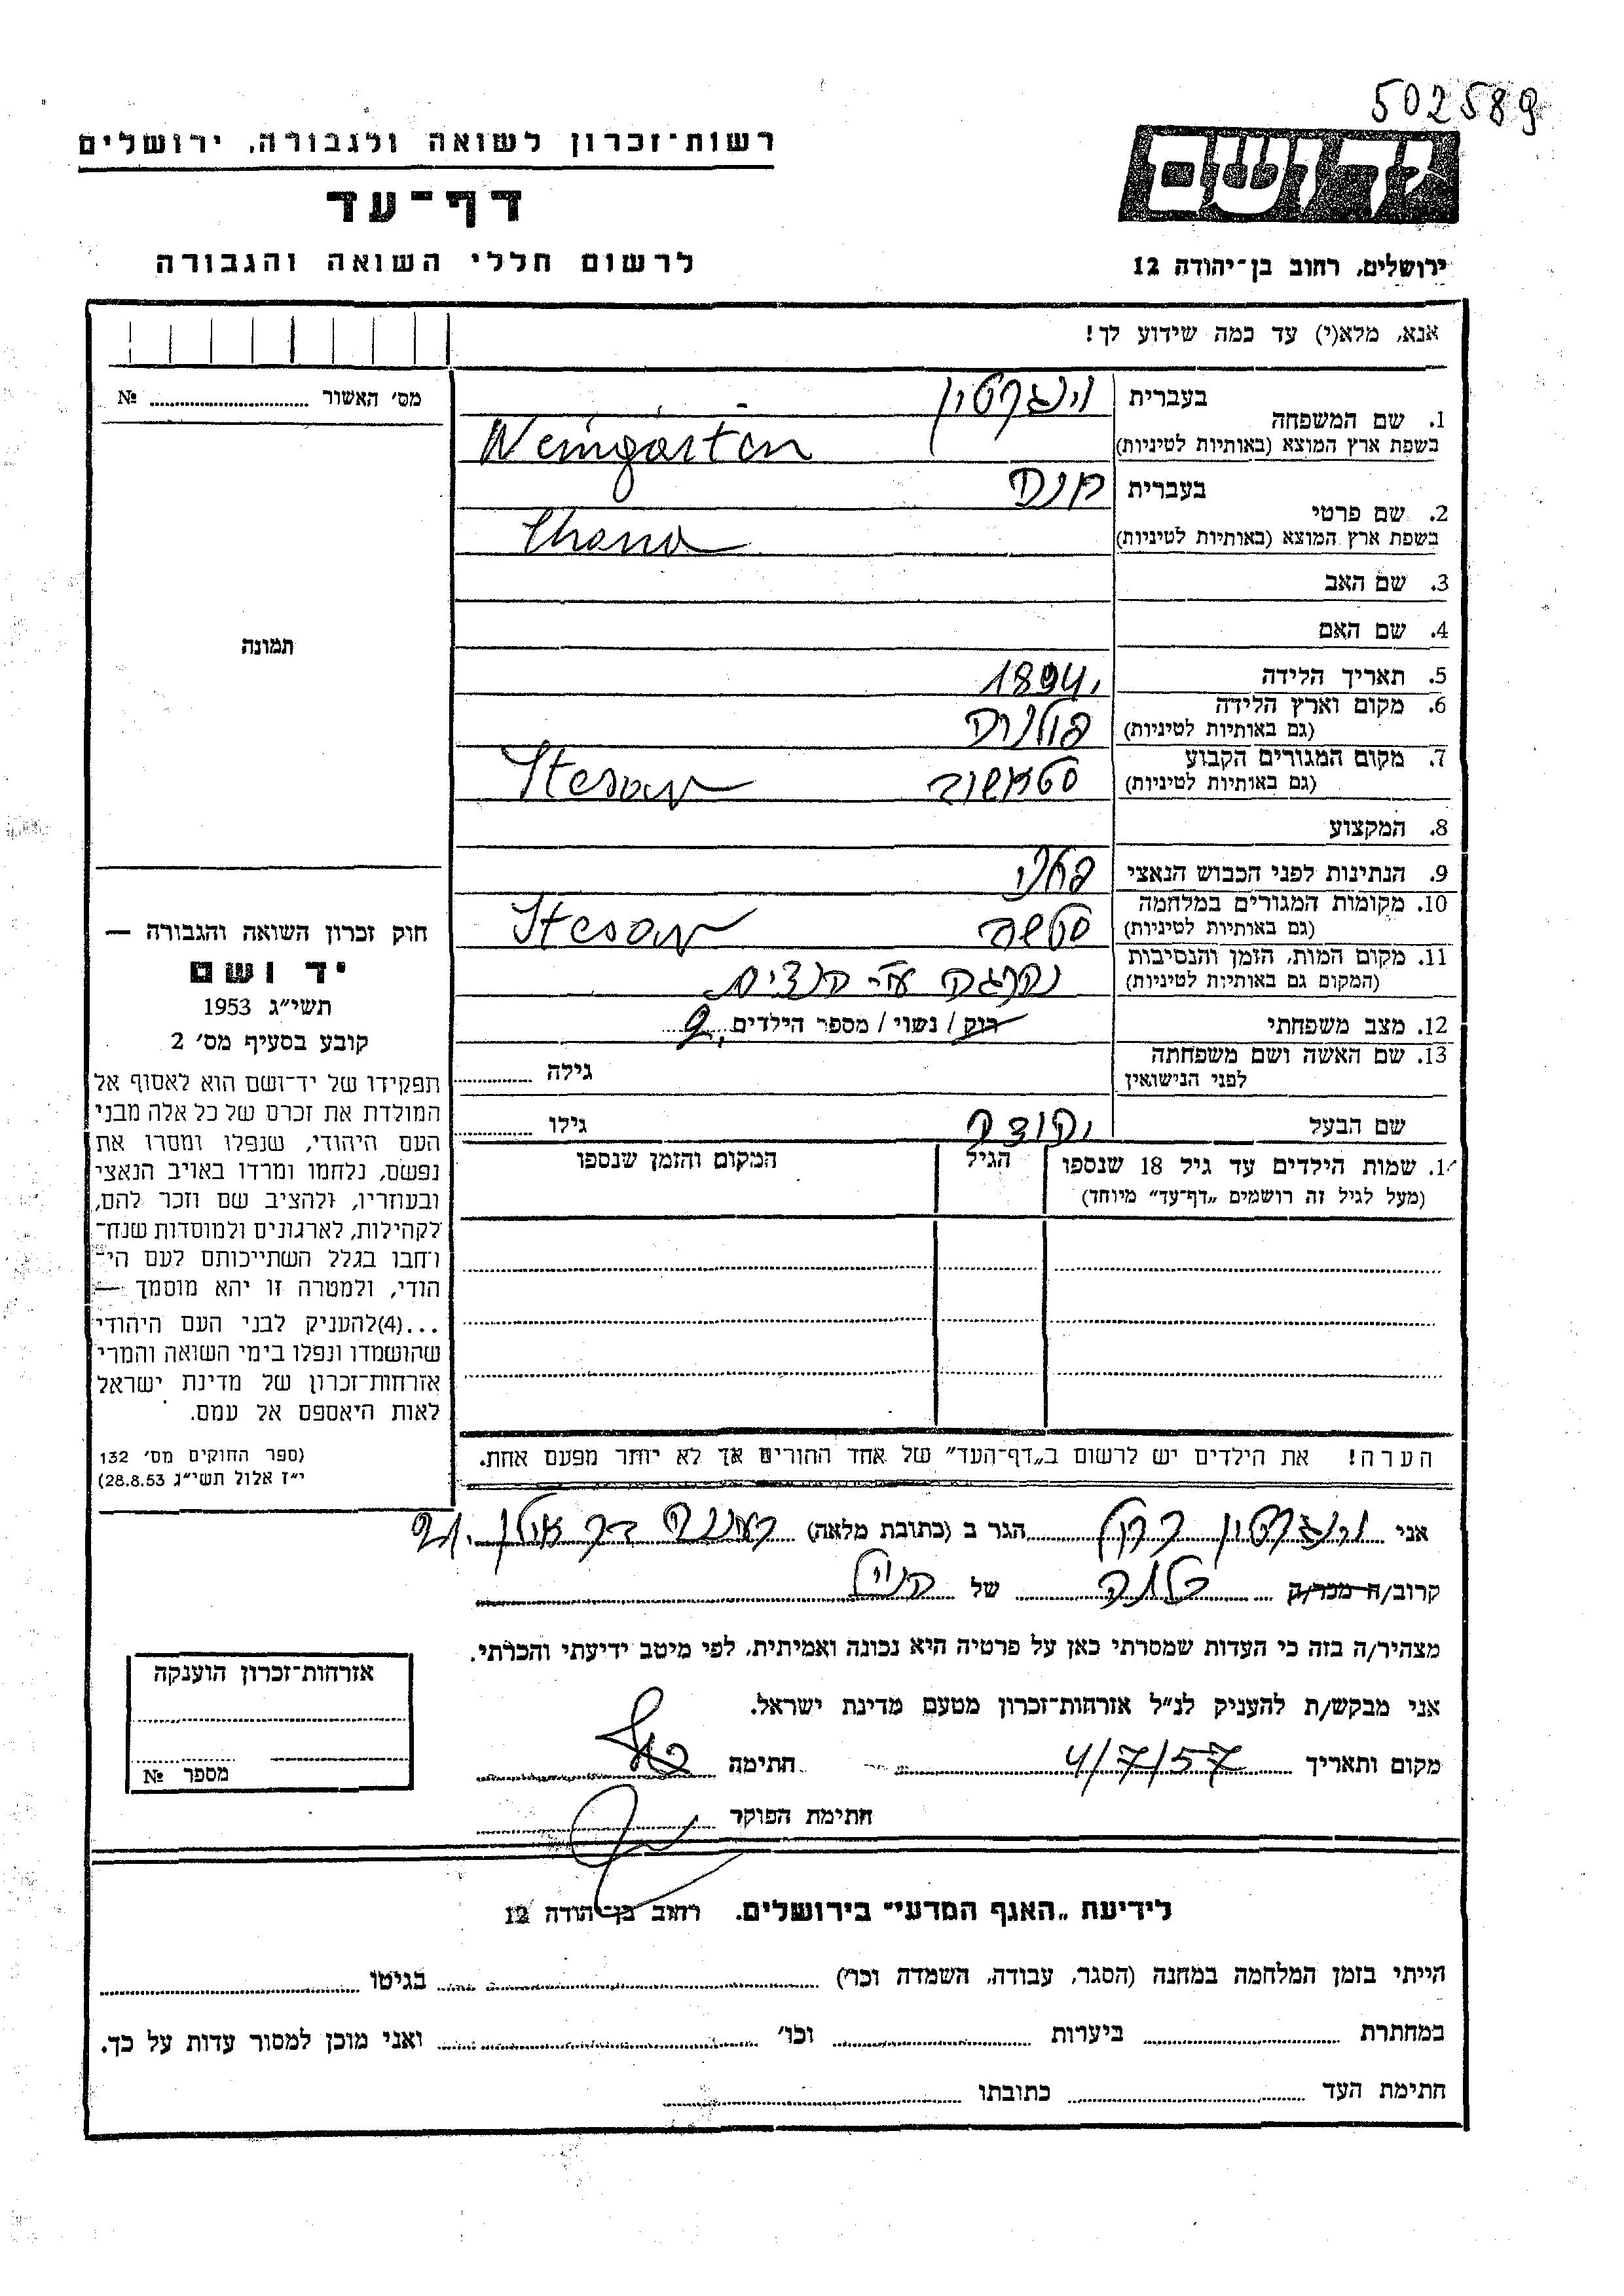 502589
ידושם
ירושלים, רחוב בן־יהודה 12
רשות־זכרון לשואה ולגבורה, ירושלים
דף־עד
לרשום חללי השואה והגבורה
אנא, מלא(י) עד כמה שידוע לך!
מס׳ האשור ........ №
תמונה
1. שם המשפחה
בעברית וינגרטן
בשפת ארץ המוצא (באותיות לטיניות) Weingarten
2. שם פרטי
בעברית חנה
בשפת ארץ המוצא (באותיות לטיניות) Chana
3. שם האב
4. שם האם
5. תאריך הלידה 1894
6. מקום וארץ הלידה פולניה
(גם באותיות לטיניות)
7. מקום המגורים הקבוע Stesow
(גם באותיות לטיניות)
8. המקצוע
9. הנתינות לפני הכבוש הנאצי פולני
10. מקומות המגורים במלחמה Stesow
(גם באותיות לטיניות)
11. מקום המות, הזמן והנסיבות נהרגה ע״י הנצים
(המקום גם באותיות לטיניות)
12. מצב משפחתי רוק / נשוי / מספר הילדים 9
13. שם האשה ושם משפחתה גילה
לפני הנישואין
שם הבעל יהודה גילו
1. שמות הילדים עד גיל 18 שנספו הגיל המקום והזמן שנספו
(מעל לגיל זה רושמים „דף־עד״ מיוחד)
הערה! את הילדים יש לרשום ב„דף־העד״ של אחד ההורים אך לא יותר מפעם אחת.
חוק זכרון השואה והגבורה —
יד ושם
תשי״ג 1953
קובע בסעיף מס׳ 2
תפקידו של יד־ושם הוא לאסוף אל
המולדת את זכרם של כל אלה מבני
העם היהודי, שנפלו ומסרו את
נפשם, נלחמו ומרדו באויב הנאצי
ובעוזריו, ולהציב שם וזכר להם,
לקהילות, לארגונים ולמוסדות שנח־
רחבו בגלל השתייכותם לעם הי־
הודי, ולמטרה זו יהא מוסמך —
...(4)להעניק לבני העם היהודי
שהושמדו ונפלו בימי השואה והמרי
אזרחות־זכרון של מדינת ישראל
לאות היאספם אל עמם.
(ספר החוקים מס׳ 132
י״ז אלול תשי״ג 28.8.53)
אני וינגרטן הגר ב (כתובת מלאה)
קרוב/ה מכר/ה כלתה של הנ״ל
מצהיר/ה בזה כי העדות שמסרתי כאן על פרטיה היא נכונה ואמיתית, לפי מיטב ידיעתי והכרתי.
אני מבקש/ת להעניק לנ״ל אזרחות־זכרון מטעם מדינת ישראל.
מקום ותאריך 4/7/57 חתימה
חתימת הפוקד
אזרחות־זכרון הוענקה
מספר №
לידיעת „האגף המדעי״ בירושלים. רחוב בן־יהודה 12
הייתי בזמן המלחמה במחנה (הסגר, עבודה, השמדה וכו׳) בגיטו
במחתרת ביערות וכו׳ ואני מוכן למסור עדות על כך.
חתימת העד כתובתו